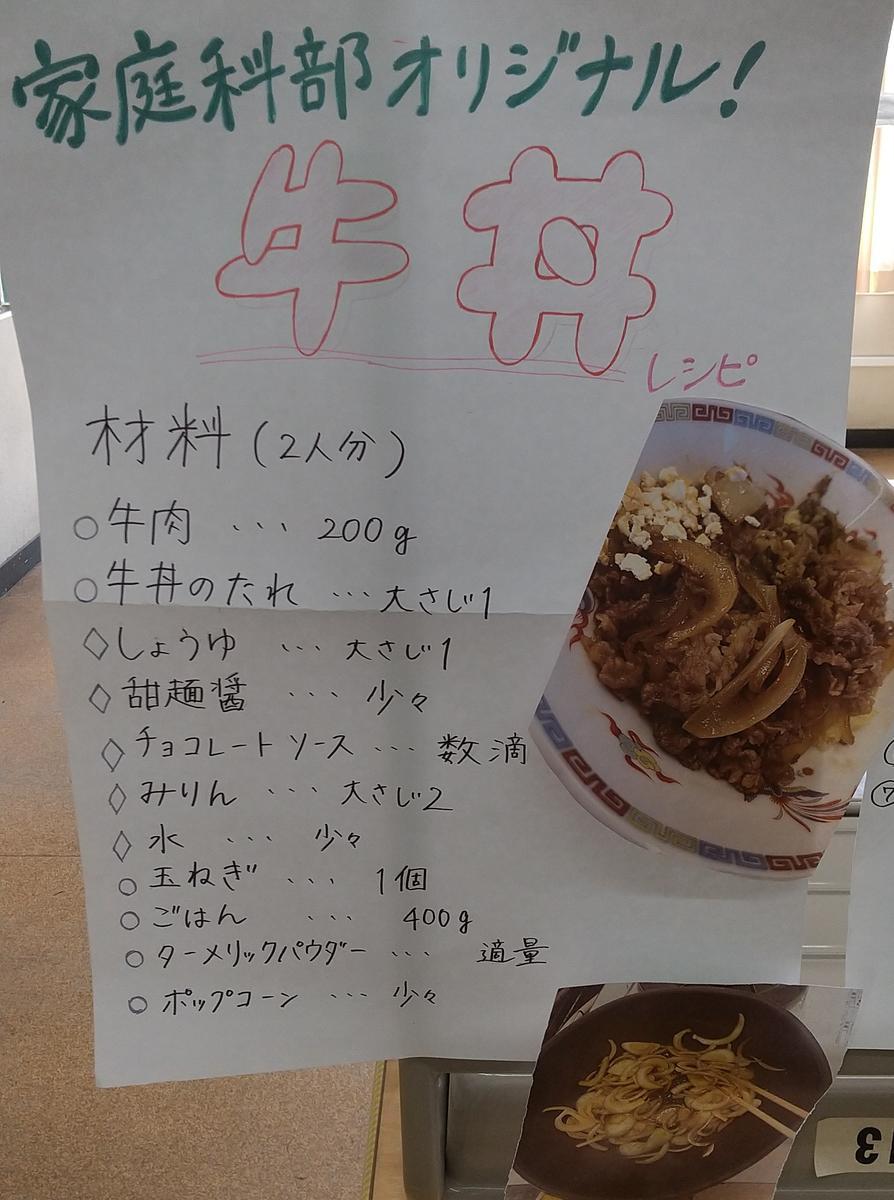 家庭科部オリジナル!
牛丼
レシピ
材料(2人分)
○牛肉 ... 200g
○牛丼のたれ ... 大さじ1
◇しょうゆ ... 大さじ1
◇甜麺醤 ... 少々
◇チョコレートソース ... 数滴
◇みりん ... 大さじ2
◇水 ... 少々
○玉ねぎ ... 1個
○ごはん ... 400g
○ターメリックパウダー ... 適量
○ポップコーン ... 少々
⑦